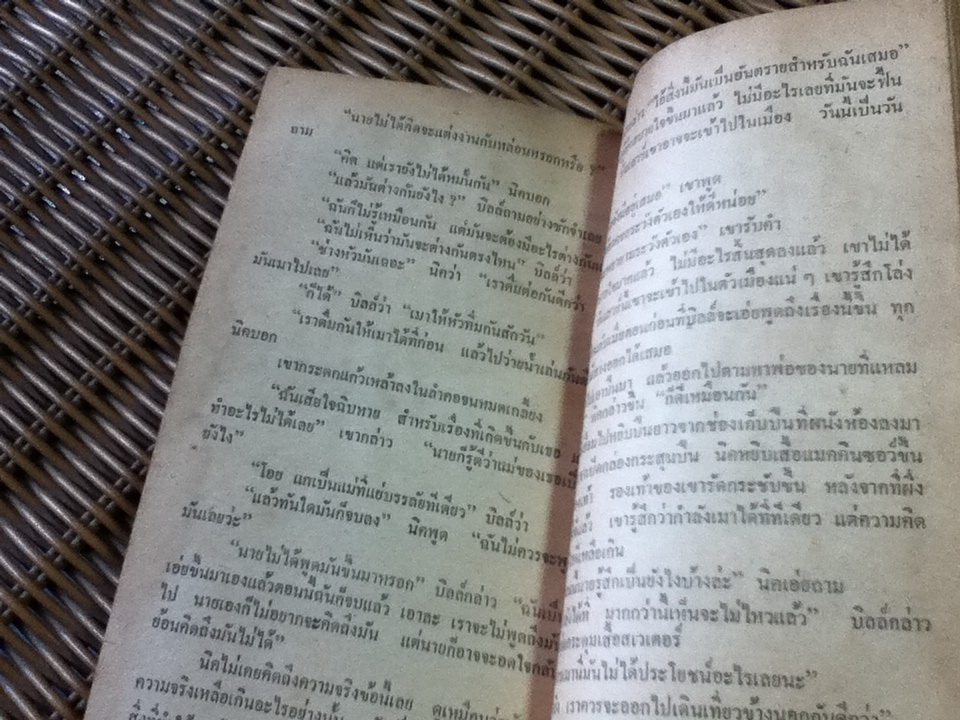 “นายไม่ได้คิดจะแต่งงานกับหล่อนหรอกหรือ ?”
ถาม
“คิด แต่เรายังไม่ได้หมั้นกัน” นิคบอก
“แล้วมันต่างกันยังไง ?” บิลล์ถามอย่างซักจำเลย
“ฉันก็ไม่รู้เหมือนกัน แต่มันจะต้องมีอะไรต่างกัน
“ฉันไม่เห็นว่ามันจะต่างกันตรงไหน” บิลล์ว่า
“ช่างหัวมันเถอะ” นิคว่า “เราดื่มต่อกันดีกว่า
มันเมาไปเลย”
“ก็ได้” บิลล์ว่า “เมาให้หัวทิ่มกันสักวัน”
“เราดื่มกันให้เมาได้ที่ก่อน แล้วไปว่ายน้ำเล่นกัน
นิคบอก
เขากระดกแก้วเหล้าลงในลำคอจนหมดเกลี้ยง
“ฉันเสียใจฉิบหาย สำหรับเรื่องที่เกิดขึ้นกับเธอ
ทำอะไรไม่ได้เลย” เขากล่าว “นายก็รู้ดีว่าแม่ของเธอ
ยังไง”
“โอย แกเป็นแม่ที่แย่บรรลัยทีเดียว” บิลล์ว่า
“แล้วทันใดมันก็จบลง” นิคพูด “ฉันไม่ควรจะพูด
มันเลยว่ะ”
“นายไม่ได้พูดมันขึ้นมาหรอก” บิลล์กล่าว “ฉัน
เอ่ยขึ้นมาเองแล้วตอนนี้ฉันก็จบแล้ว เอาละ เราจะไม่พูดถึง
ไป นายเองก็ไม่อยากจะคิดถึงมัน แต่นายก็อาจจะอดใจ
ย้อนคิดถึงมันไม่ได้”
นิคไม่เคยคิดถึงความจริงข้อนี้เลย ดูเหมือน
ความจริงเหลือเกินอะไรอย่างนั้น
“ไอ้สิ่งนี้มันเป็นอันตรายสำหรับฉันเสมอ”
ขึ้นมาแล้ว ไม่มีอะไรเลยที่มันจะฟื้น
เขาอาจจะเข้าไปในเมือง วันนี้เป็นวัน
อยู่เสมอ” เขาพูด
ระวังตัวเองให้ดีหน่อย”
ระวังตัวเอง” เขารับคำ
แล้ว ไม่มีอะไรสิ้นสุดลงแล้ว เขาไม่ได้
นี้เขาจะเข้าไปในตัวเมืองแน่ ๆ เขารู้สึกโล่ง
ตอนก่อนที่บิลล์จะเอ่ยพูดถึงเรื่องนี้ขึ้น ทุก
ออกได้เสมอ
มา แล้วออกไปตามหาพ่อของนายที่แหลม
กล่าวขึ้น “ก็ดีเหมือนกัน”
ไปหยิบปืนยาวจากช่องเก็บปืนที่ผนังห้องลงมา
กล่องกระสุนปืน นิคหยิบเสื้อแมคคินซอว์ขึ้น
รองเท้าของเขารัดกระชับขึ้น หลังจากที่ผึ่ง
เขารู้สึกว่ากำลังเมาได้ที่ทีเดียว แต่ความคิด
เหลือเกิน
รู้สึกเป็นยังไงบ้างล่ะ” นิคเอ่ยถาม
ได้ที่ มากกว่านี้เห็นจะไม่ไหวแล้ว” บิลล์กล่าว
กระดุมเสื้อสเวตเตอร์
นี่มันไม่ได้ประโยชน์อะไรเลยนะ”
เราควรจะออกไปเดินเที่ยวข้างนอกกันดีกว่า”